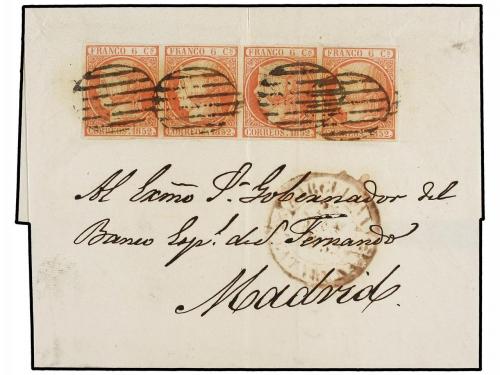 FRANCO 6 Cs FRANCO 6 Cs FRANCO 6 Cs FRANCO 6 Cs
CORREOS. 1852. CORREOS. 1852. CORREOS. 1852. CORREOS. 1852.
Al Exmo Sr. Gobernador del
Banco Espl. de S. Fernando
Madrid.